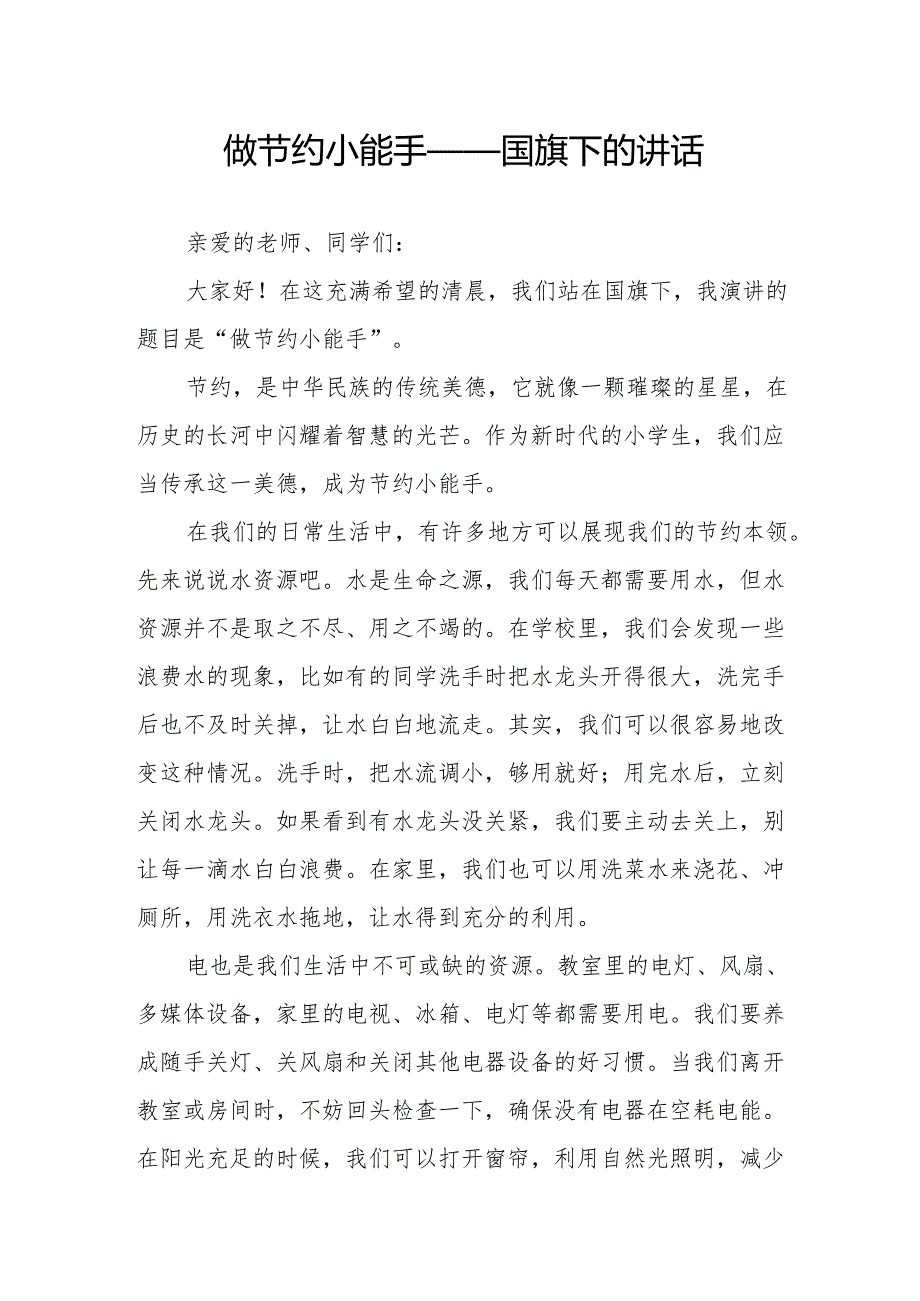 做节约小能手——国旗下的讲话
亲爱的老师、同学们：
大家好！在这充满希望的清晨，我们站在国旗下，我演讲的
题目是“做节约小能手”。
节约，是中华民族的传统美德，它就像一颗璀璨的星星，在
历史的长河中闪耀着智慧的光芒。作为新时代的小学生，我们应
当传承这一美德，成为节约小能手。
在我们的日常生活中，有许多地方可以展现我们的节约本领。
先来说说水资源吧。水是生命之源，我们每天都需要用水，但水
资源并不是取之不尽、用之不竭的。在学校里，我们会发现一些
浪费水的现象，比如有的同学洗手时把水龙头开得很大，洗完手
后也不及时关掉，让水白白地流走。其实，我们可以很容易地改
变这种情况。洗手时，把水流调小，够用就好；用完水后，立刻
关闭水龙头。如果看到有水龙头没关紧，我们要主动去关上，别
让每一滴水白白浪费。在家里，我们也可以用洗菜水来浇花、冲
厕所，用洗衣水拖地，让水得到充分的利用。
电也是我们生活中不可或缺的资源。教室里的电灯、风扇、
多媒体设备，家里的电视、冰箱、电灯等都需要用电。我们要养
成随手关灯、关风扇和关闭其他电器设备的好习惯。当我们离开
教室或房间时，不妨回头检查一下，确保没有电器在空耗电能。
在阳光充足的时候，我们可以打开窗帘，利用自然光照明，减少